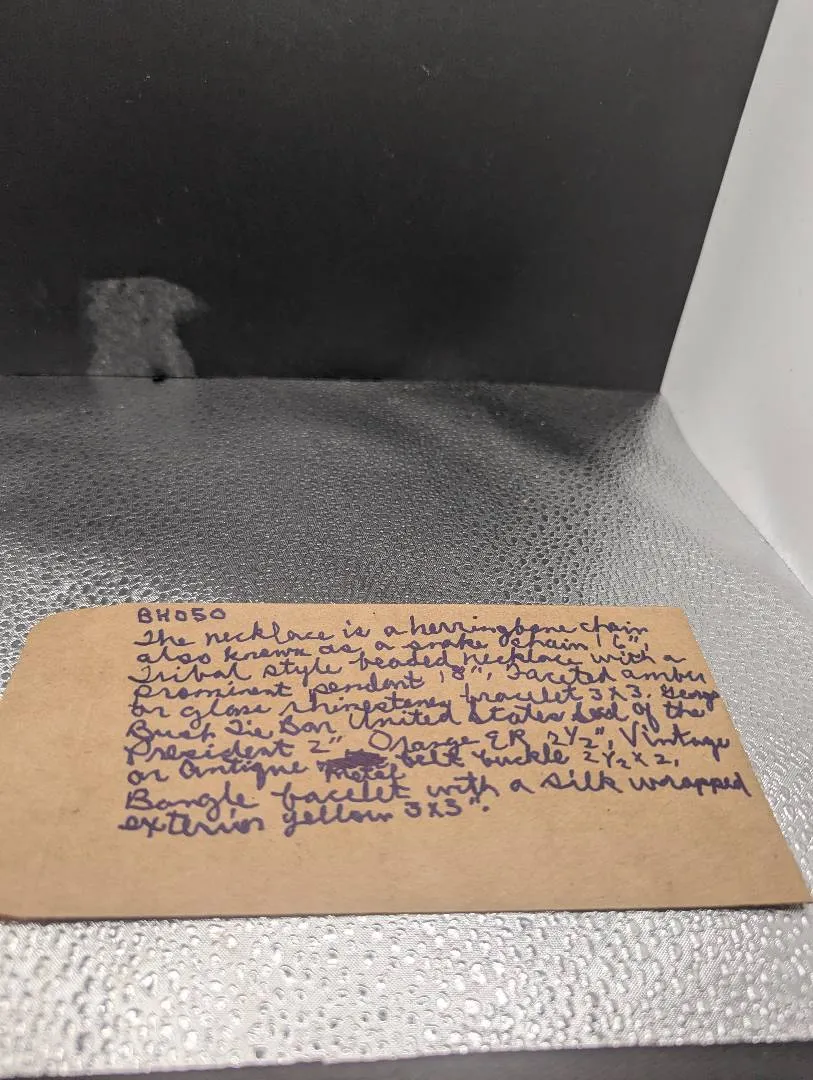 BH050
The necklace is a herringbone chain
also known as a snake chain 16",
Tribal style beaded necklace with a
prominent pendant 18", Faceted amber
or glass rhinestones bracelet 3x3. George
Bush Tie Bar United States Seal of the
President 2", Orange ER 2 1/2", Vintage
or antique metal belt buckle 2 1/2 x 2,
Bangle bacelet with a silk wrapped
exterior yellow 3x3".